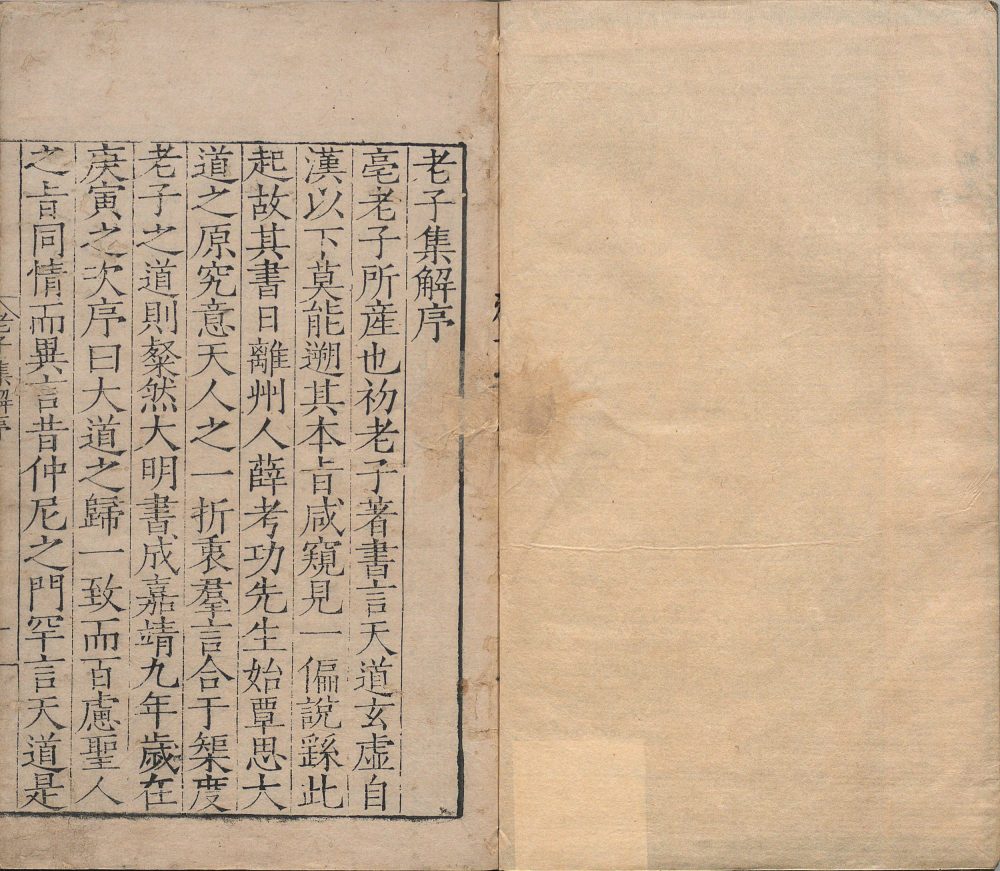 老子集解序
亳老子所産也礽老子著書言天道玄虛自
漢以下莫能遡其本㫖咸窺見一偏說繇此
起故其書日離州人薛考功先生始覃思大
道之原究意天人之一折衷羣言合于榘度
老子之道則粲然大明書成嘉靖九年歲在
庚寅之次序曰大道之歸一致而百慮聖人
之㫖同情而異言昔仲尼之門罕言天道是
老子集解序
一